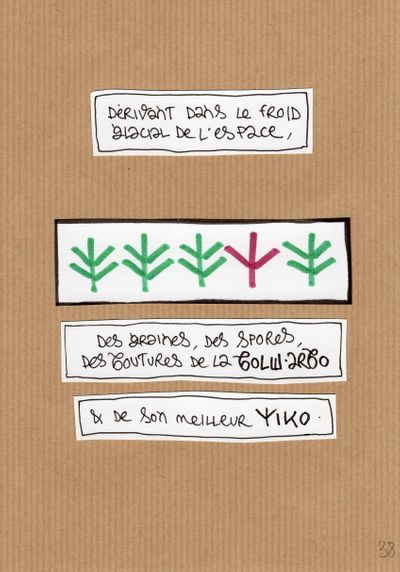 Dérivant dans le froid
glacial de l'espace,
Des graines, des spores,
des boutures de la
& de son meilleur YIKO.
38